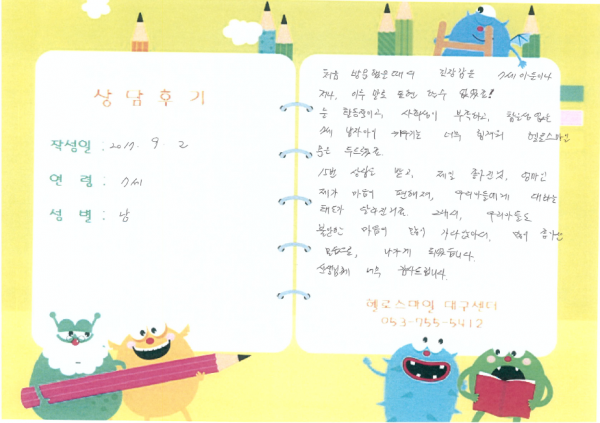 상담후기
작성일 : 2017. 9. 2
연 령 : 7세
성 별 : 남
처음 방문했을때의 긴장감은 7세 아들이나
저나, 이루 말로 표현 할수 없었죠!
늘 활동중이고, 사회성이 부족하고,
7세 남자아이 키우기는 너무 힘겨워 헬로스마일
문을 두드렸죠.
15번 상담을 받고, 제일 좋아진것, 엄마인
제가 마음이 편해져, 우리아들에게 대하는
태도가 달라진거죠. 그래서, 우리아들도
불안한 마음이 많이 사라졌어요, 많이 좋아진
모습으로, 나가게 되었습니다.
선생님께 너무 감사드립니다.
헬로스마일 대구센터
053-755-5412